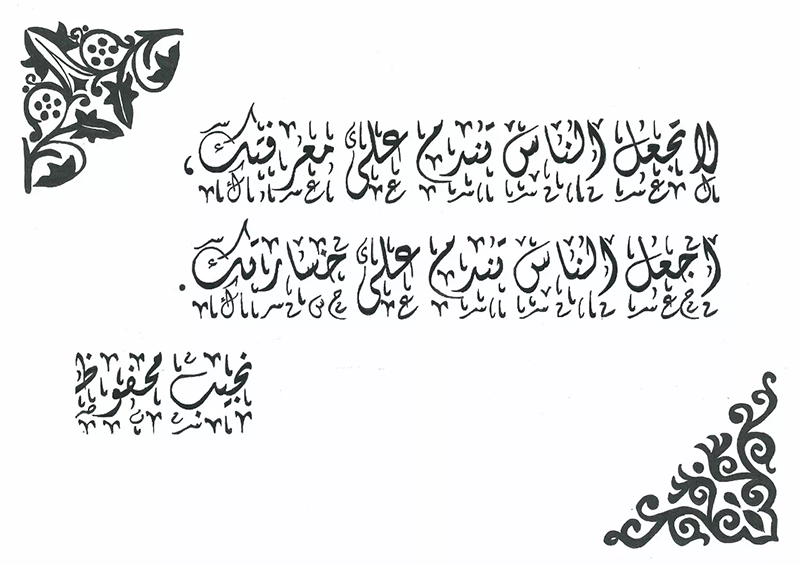 لا تجعل الناس تندم على معرفتك،
اجعل الناس تندم على خسارتك.
نجيب محفوظ